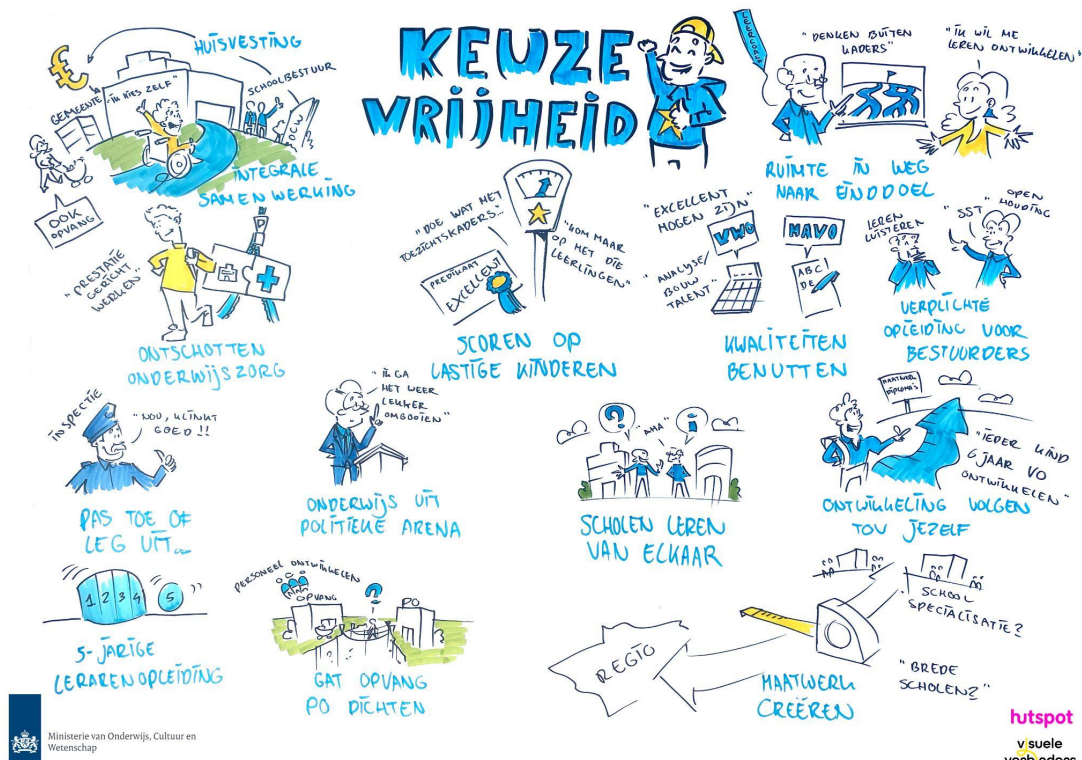 KEUZE
VRIJHEID
HUISVESTING
GEMEENTE
"IK KIES ZELF"
SCHOOLBESTUUR
OCW
OOK
OPVANG
INTEGRALE
SAMENWERKING
"PRESTATIE
GERICHT
WERKEN"
ONTSCHOTTEN
ONDERWIJSZORG
"DOE WAT MET
TOEZICHTSKADERS..."
PREDIKAAT
EXCELLENT
"KOM MAAR
OP MET DIE
LEERLINGEN"
SCOREN OP
LASTIGE KINDEREN
LEERCOACH
"DENKEN BUITEN
KADERS"
"IK WIL ME
LEREN ONTWIKKELEN"
RUIMTE IN WEG
NAAR EINDDOEL
"EXCELLENT
MOGEN ZIJN"
VWO
HAVO
"ANALYSE/
BOUW
TALENT"
ABC
DE
KWALITEITEN
BENUTTEN
LEREN
LUISTEREN
"SST"
OPEN
HOUDING
VERPLICHTE
OPLEIDING VOOR
BESTUURDERS
INSPECTIE
"NOU, KLINKT
GOED!!"
PAS TOE OF
LEG UIT...
"IK GA
HET WEER
LEKKER
OMGOOIEN"
ONDERWIJS UIT
POLITIEKE ARENA
?
"AHA"
i
SCHOLEN LEREN
VAN ELKAAR
MAATWERK
DIPLOMA'S
"IEDER KIND
6 JAAR VO
ONTWIKKELEN"
ONTWIKKELING VOLGEN
TOV JEZELF
1 2 3 4 5
5-JARIGE
LERARENOPLEIDING
PERSONEEL ONTWIKKELEN
OPVANG
?
PO
GAT OPVANG
PO DICHTEN
REGIO
SCHOOL
SPECIALISATIE?
"BREDE
SCHOLEN?"
MAATWERK
CREËREN
Ministerie van Onderwijs, Cultuur en
Wetenschap
hutspot
visuele